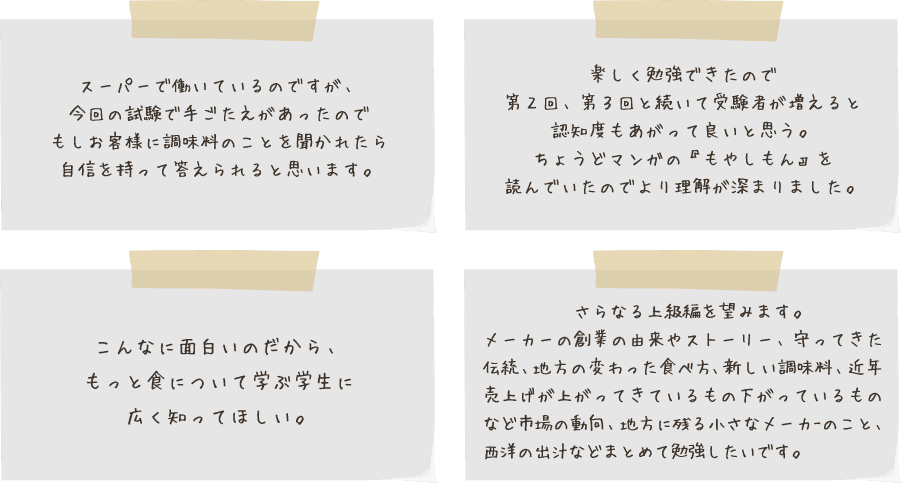 スーパーで働いているのですが、
今回の試験で手ごたえがあったので
もしお客様に調味料のことを聞かれたら
自信を持って答えられると思います。
楽しく勉強できたので
第2回、第3回と続いて受験者が増えると
認知度もあがって良いと思う。
ちょうどマンガの『もやしもん』を
読んでいたのでより理解が深まりました。
こんなに面白いのだから、
もっと食について学ぶ学生に
広く知ってほしい。
さらなる上級編を望みます。
メーカーの創業の由来やストーリー、守ってきた
伝統、地方の変わった食べ方、新しい調味料、近年
売上げが上がってきているもの下がっているもの
など市場の動向、地方に残る小さなメーカーのこと、
西洋の出汁などまとめて勉強したいです。